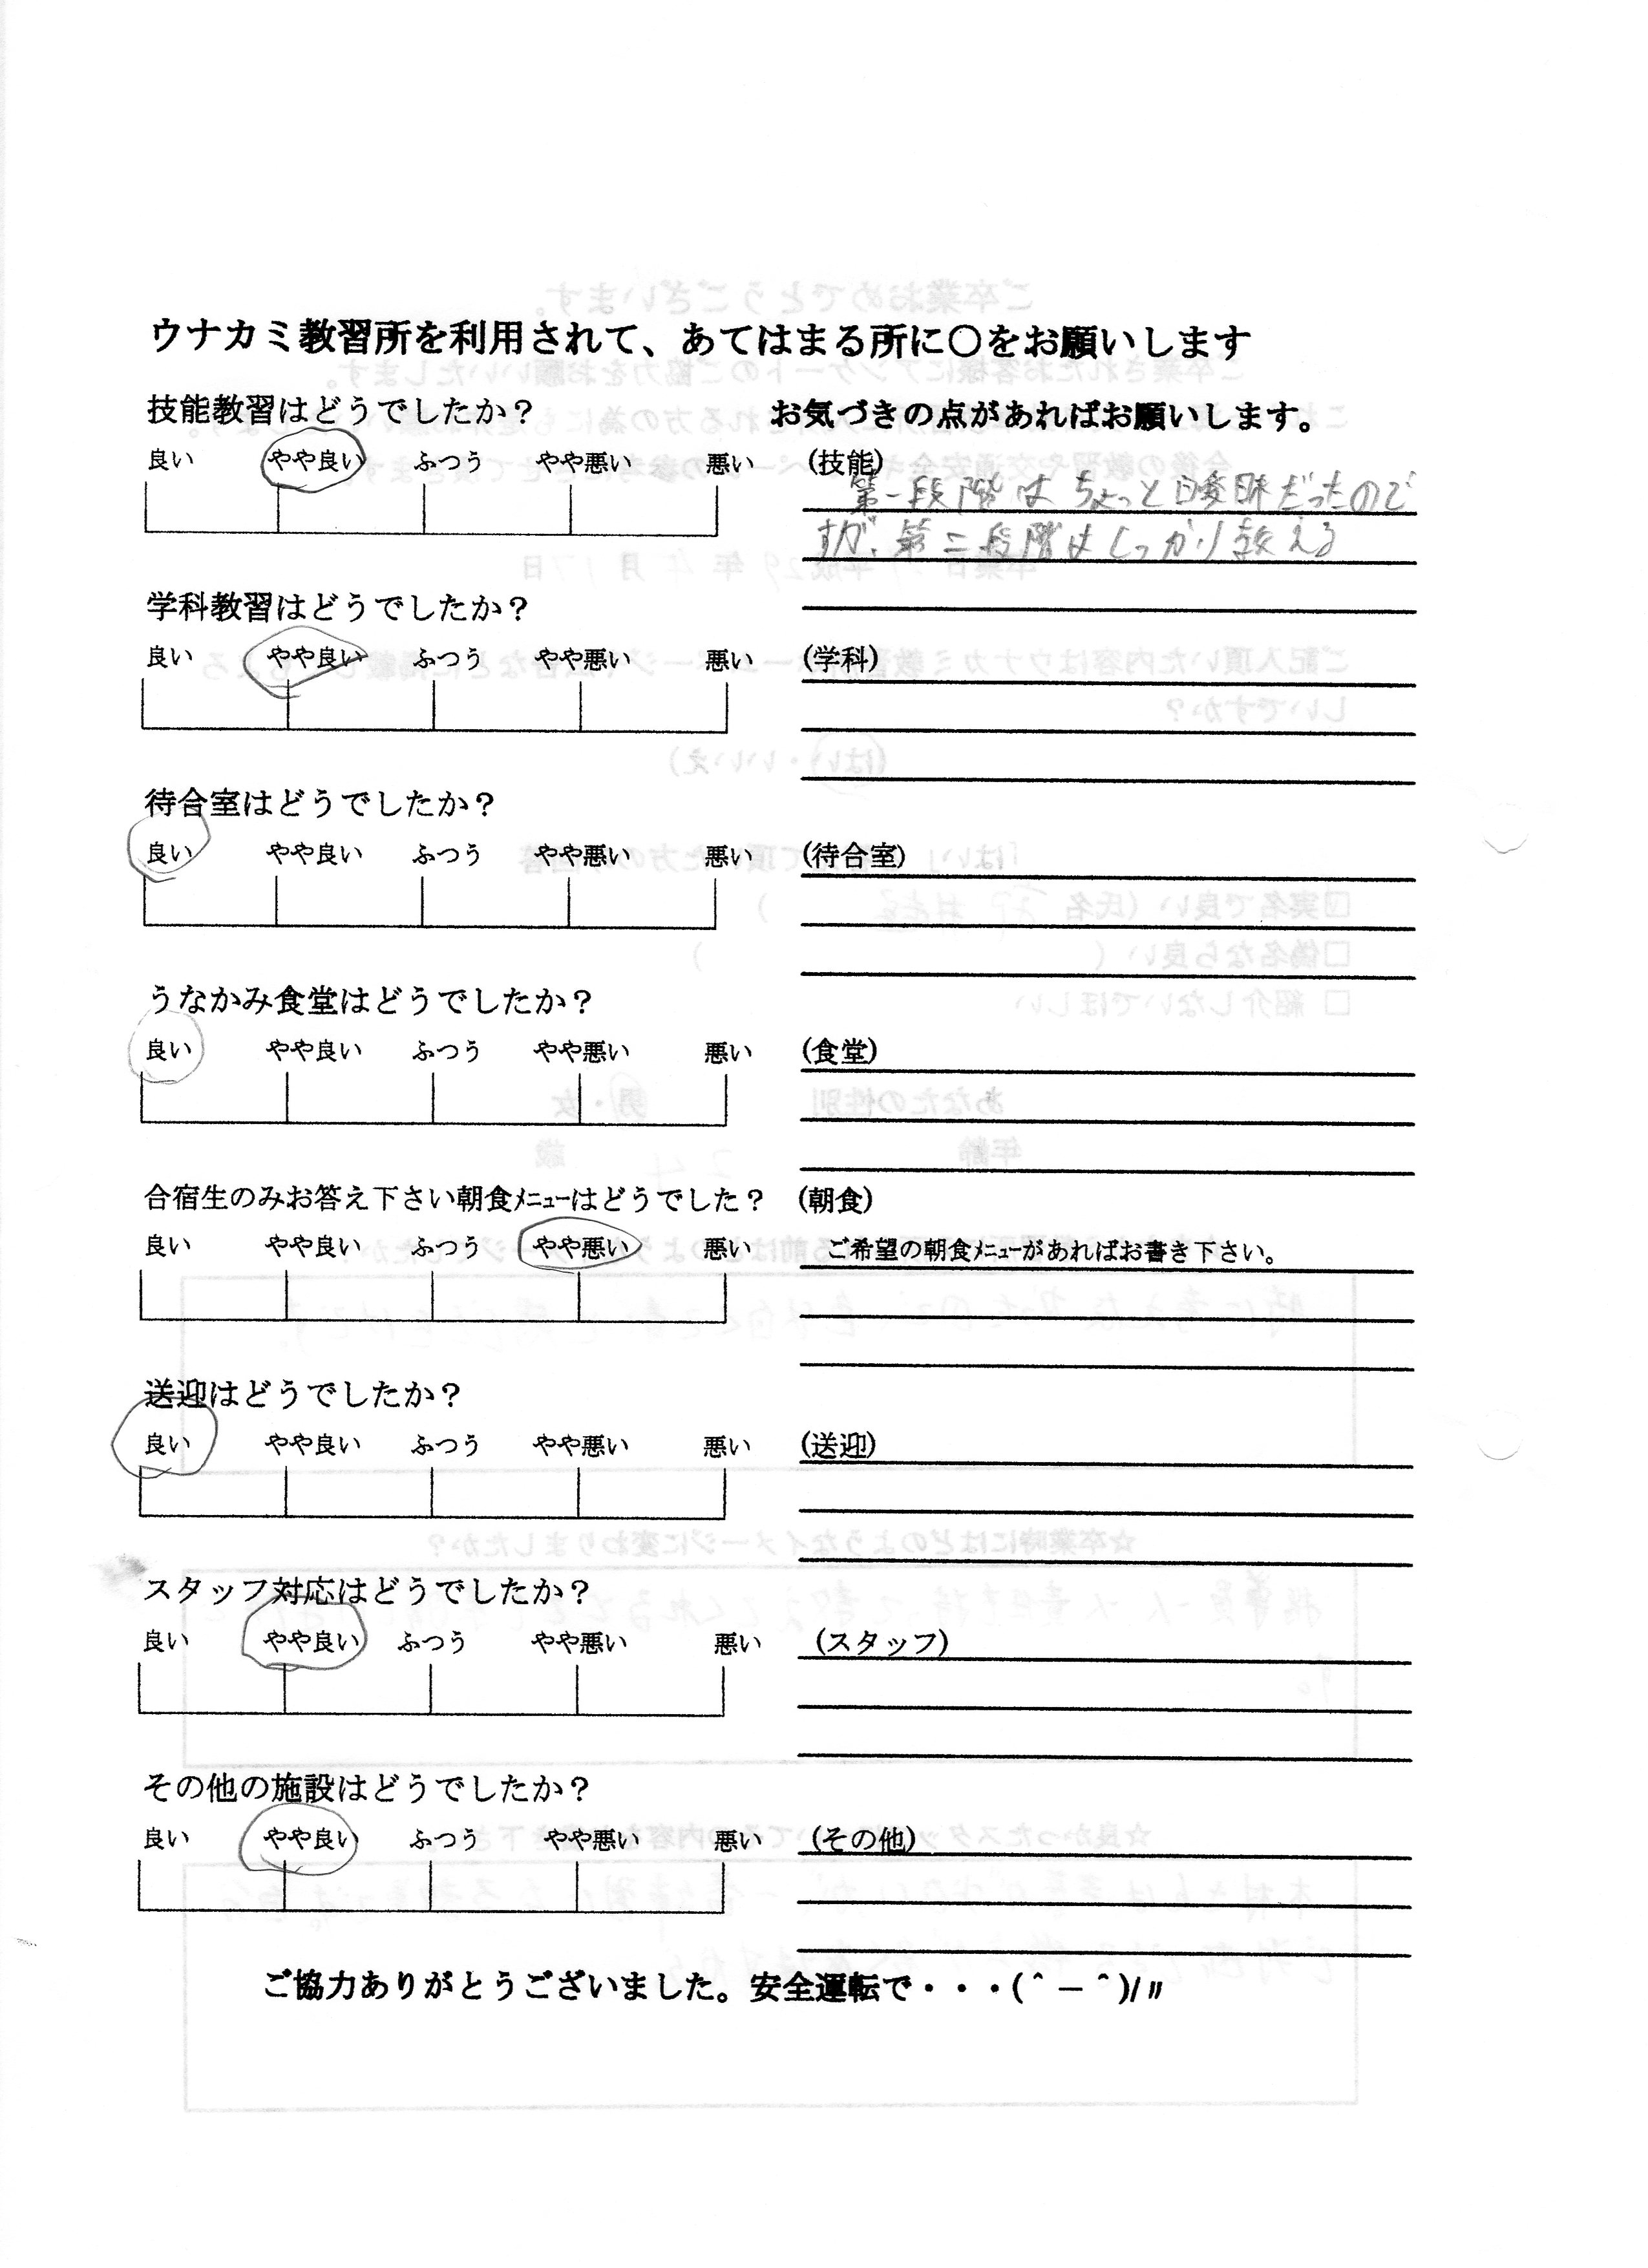 ウナカミ教習所を利用されて、あてはまる所に〇をお願いします
技能教習はどうでしたか？
お気づきの点があればお願いします。
良い やや良い ふつう やや悪い 悪い
(技能)
第一段階はちょっと曖昧だったので
すが、第二段階はしっかり教える
学科教習はどうでしたか？
良い やや良い ふつう やや悪い 悪い
(学科)
待合室はどうでしたか？
良い やや良い ふつう やや悪い 悪い
(待合室)
うなかみ食堂はどうでしたか？
良い やや良い ふつう やや悪い 悪い
(食堂)
合宿生のみお答え下さい朝食ﾒﾆｭｰはどうでした？
(朝食)
良い やや良い ふつう やや悪い 悪い
ご希望の朝食ﾒﾆｭｰがあればお書き下さい。
送迎はどうでしたか？
良い やや良い ふつう やや悪い 悪い
(送迎)
スタッフ対応はどうでしたか？
良い やや良い ふつう やや悪い 悪い
(スタッフ)
その他の施設はどうでしたか？
良い やや良い ふつう やや悪い 悪い
(その他)
ご協力ありがとうございました。安全運転で・・・(＾－＾)/〃